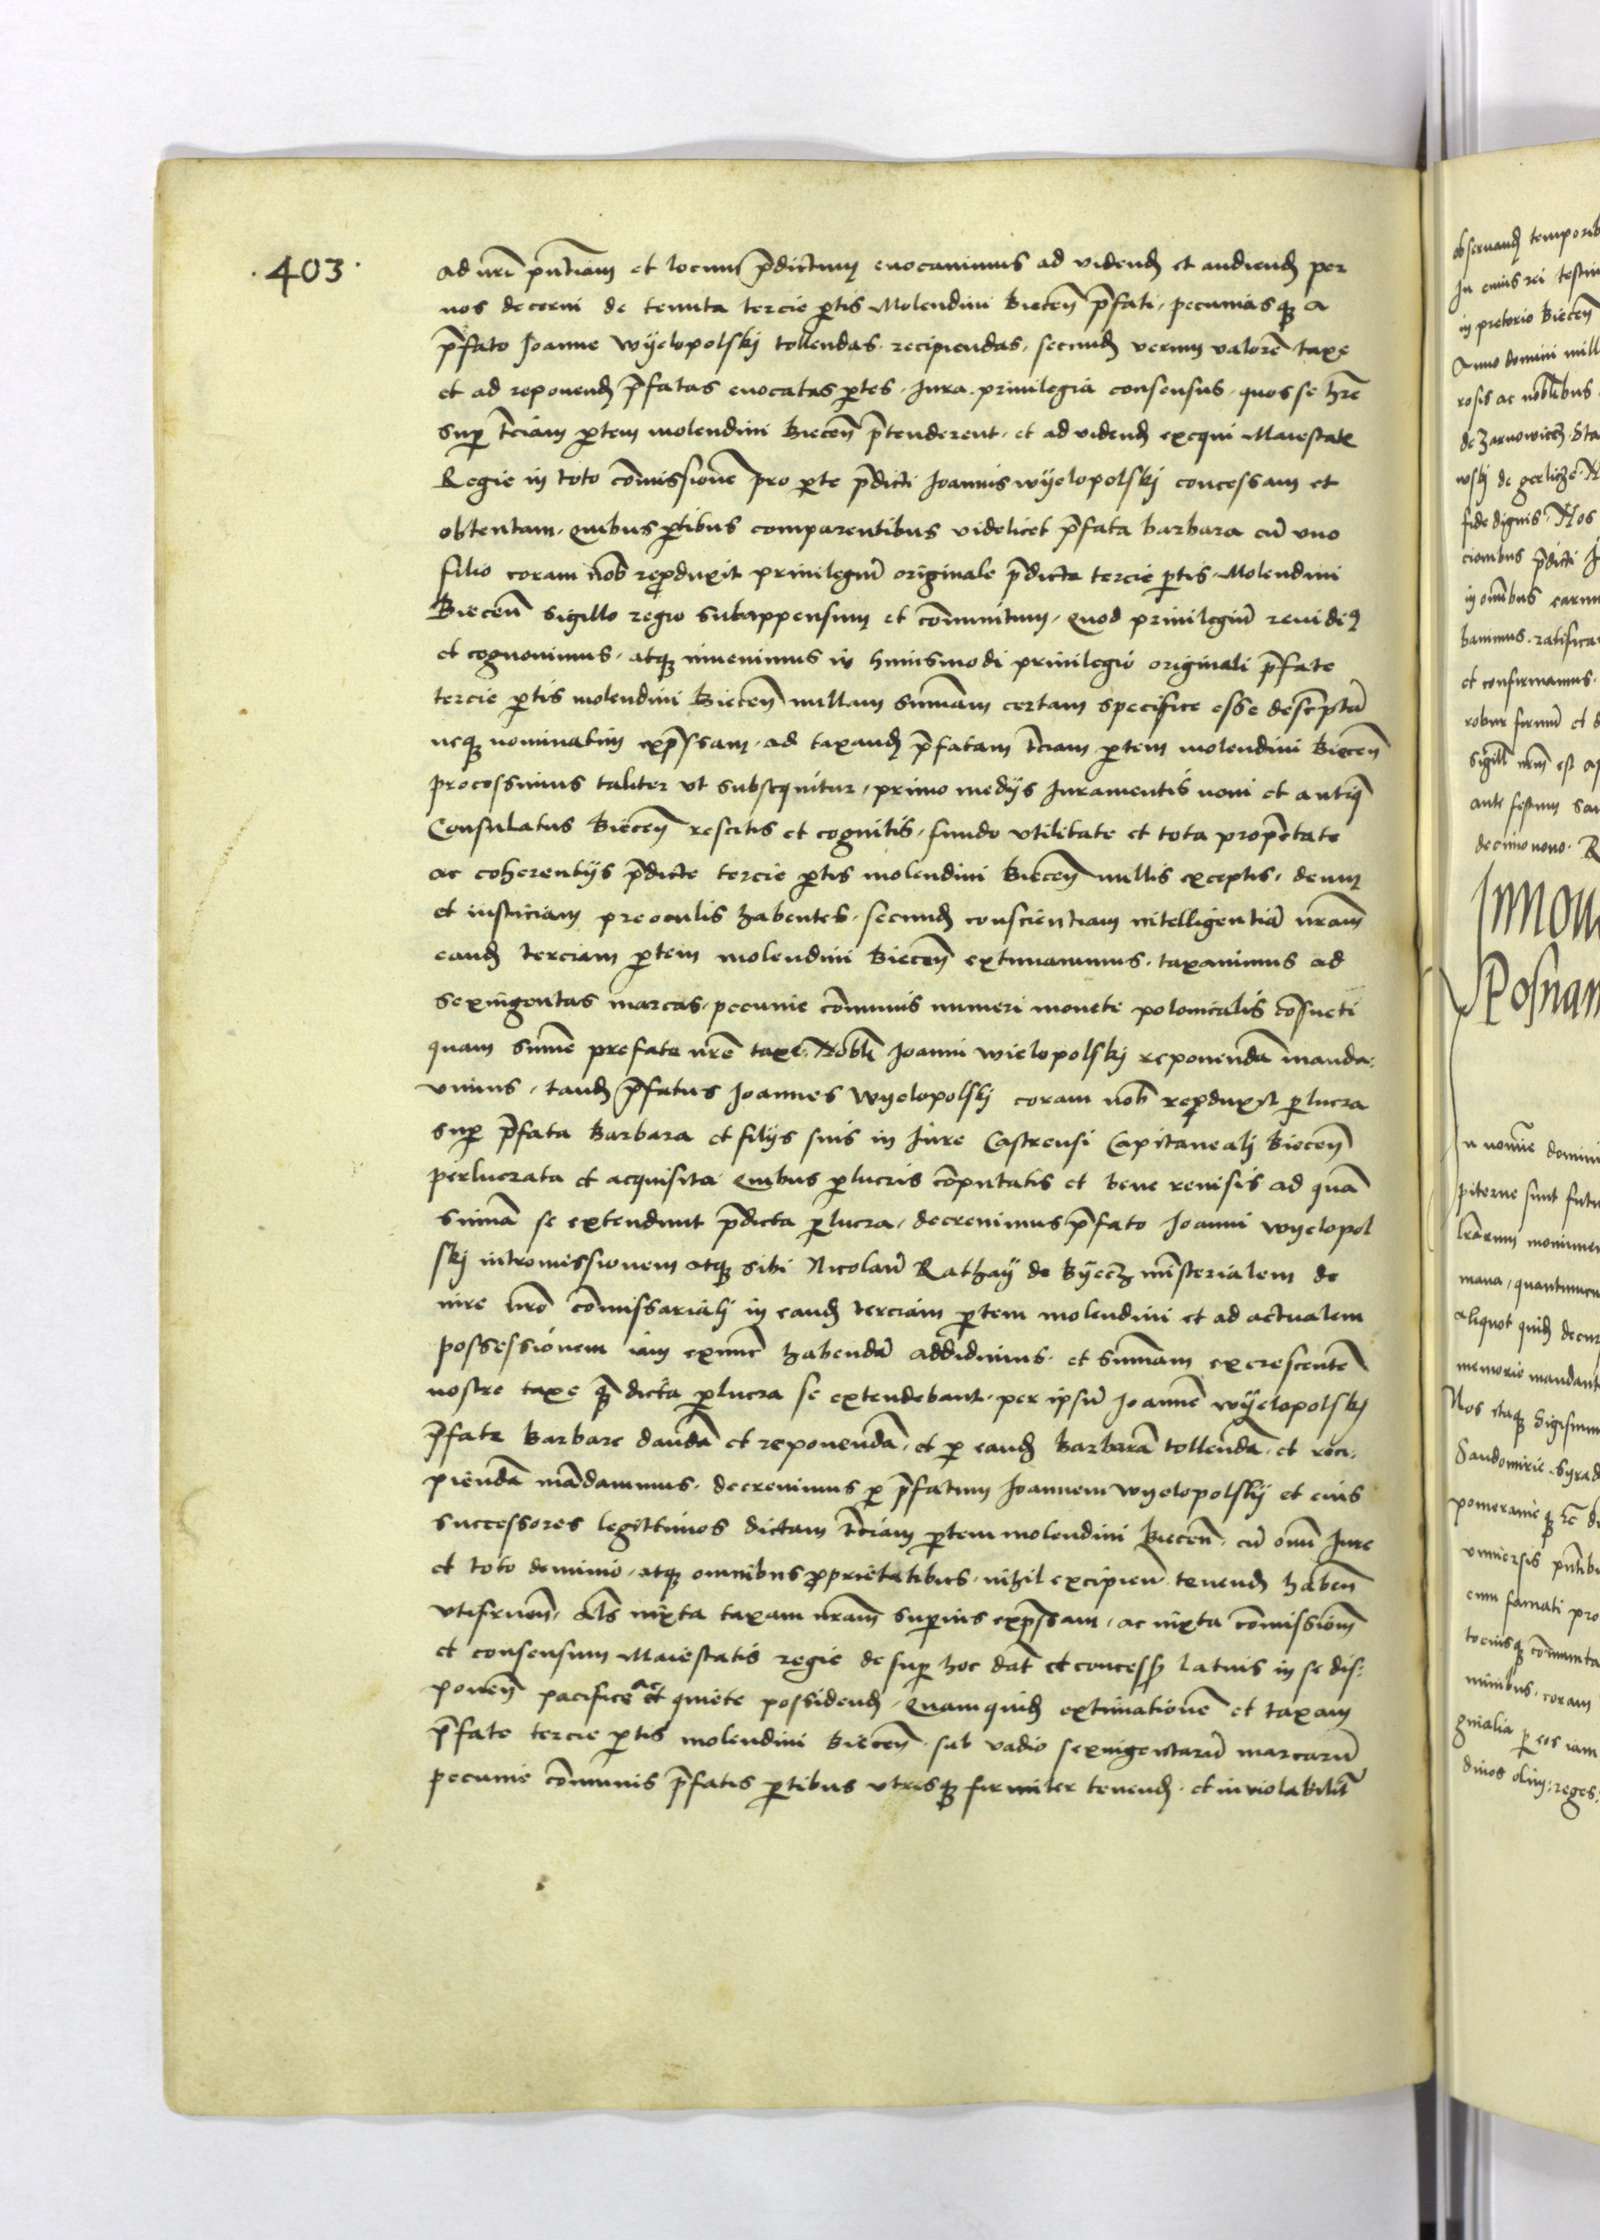 .403.
ad nrī pntiam et locum p̄dictum euocauimus ad videnđ et audienđ per
nos decerni de tenuta tercie ꝑtis Molendini Biecen̄ p̄fati, pecuniasqꝫ a
p̄fato Joanne Wyelopolskj tollendas, recipiendas, secundꝫ verum valorē taxe
et ad reponendꝫ p̄fatas euocatas ꝑtes, Jura, priuilegia consensus, quos se hr̄e
suꝑ tciam ꝑtem molendini Biecen̄ p̄tenderent, et ad videndꝫ exequi Maiestatis
Regie in toto cōmissionē pro ꝑte p̄dicti Joannis wyelopolskj concessam et
obtentam, Quibus ꝑtibus comparentibus videlicet p̄fata barbara cū vno
filio coram nob̄ reproduxit priuilegiū originale p̄dicte tercie ꝑtis Molendini
Biecen̄ sigillo regio subappensum et cōmunitum, Quod priuilegiū reuidiꝯ
et cognouimus, atqꝫ inuenimus in huiusmodi priuilegio originali p̄fate
tercie ꝑtis molendini Biecen̄ nullam sum̄am certam specifice esse descriptā
neqꝫ nominatim exp̄ssam, ad taxandꝫ p̄fatam tciam ꝑtem molendini Biecen̄
processimus taliter vt subsequitur, primo medijs Juramentis noui et antiq̄
Consulatus Biecen̄ rescitis et cognitis, fundo vtilitate et tota prop̄etate
ac coherentijs p̄dicte tercie ꝑtis molendini Biecen̄ nullis exceptis, deum
et iusticiam pre oculis habentes, secundꝫ conscientiam intelligentiā nr̄am
eandꝫ terciam ꝑtem molendini Biecen̄ extimauimus, taxauimus ad
sexingentas marcas, pecunie cōmunis numeri monete polonicalis cōsueti
quam sum̄e prefate nr̄e taxe, Nobli Joanni wielopolskj reponendā manda-
uimus, tandꝫ p̄fatus Joannes Wyelopolskj coram nob̄ reproduxit ꝑlucra
suꝑ p̄fata Barbara et filijs suis in Jure Castrensi Capitanealj Biecen̄
perlucrata et acquisita Quibus ꝑlucris cōputatis et bene reuisis ad quā
sum̄ā se extendunt p̄dicta ꝑlucra, decreuimus p̄fato Joanni wyelopol
skj intromissionem atqꝫ sibi Nicolaū Rathaÿ de Byecz ministerialem de
iure nr̄o cōmissarialj in eandꝫ terciam ꝑtem molendini et ad actualem
possessionem iam exnunc habendā addidimus, et sum̄am excrescentē
nostre taxe quā dicta ꝑlucra se extendebant, per ipsū Joannē wyelopolskj
p̄fate Barbare dandā et reponendā, et ꝑ eandꝫ Barbarā tollendā, et reci-
piendā mādauimus, decreuimus ꝑ p̄fatum Joannem wyelopolskj et eius
successores legittimos dictam tciam ꝑtem molendini Biecen̄, cū omī Jure
et toto dominio, atqꝫ omnibus proprietatibus, nihil excipien̄ tenendꝫ haben̄
vtifruen̄, als iuxta taxam nr̄am superius exp̄ssam, ac iuxta cōmissionē
et consensum Maiestatis regie de suꝑ hoc dat̄ et concess̄ latius in se dis-
ponen̄ pacifice ac et quiete possidendꝫ, Quamquidꝫ extimationē et taxam
p̄fate tercie ꝑtis molendini Biecen̄, sub vadio sexingentarū marcarū
pecunie cōmunis p̄fatis ꝑtibus vtrisqꝫ firmiter tenendꝫ, et inuiolabilit̄
obseruandꝫ temporib
Jn cuius rei testim
in pretorio Biecen̄
Anno domini mill
rosis ac nobilibus
de Zarnowiecz Sta
fide dignis, Nos
cionibus p̄dicti J
in omībus earum
bauimus, ratifica
et confirmamus
robur firmū et
ante festum San
decimonono
Posnan
Jn nomīe domini
piterne sunt futu
lr̄arum monimen
mana, quantumcu
aliquot quidꝫ
memorie mandant
Nos itaqꝫ Sigismun
Sandomirie Syrad
pomeranieqꝫ
vniuersis pntibu
cum famati pro
minibus, coram
ginalia ꝑ eos iam
diuos olim reges